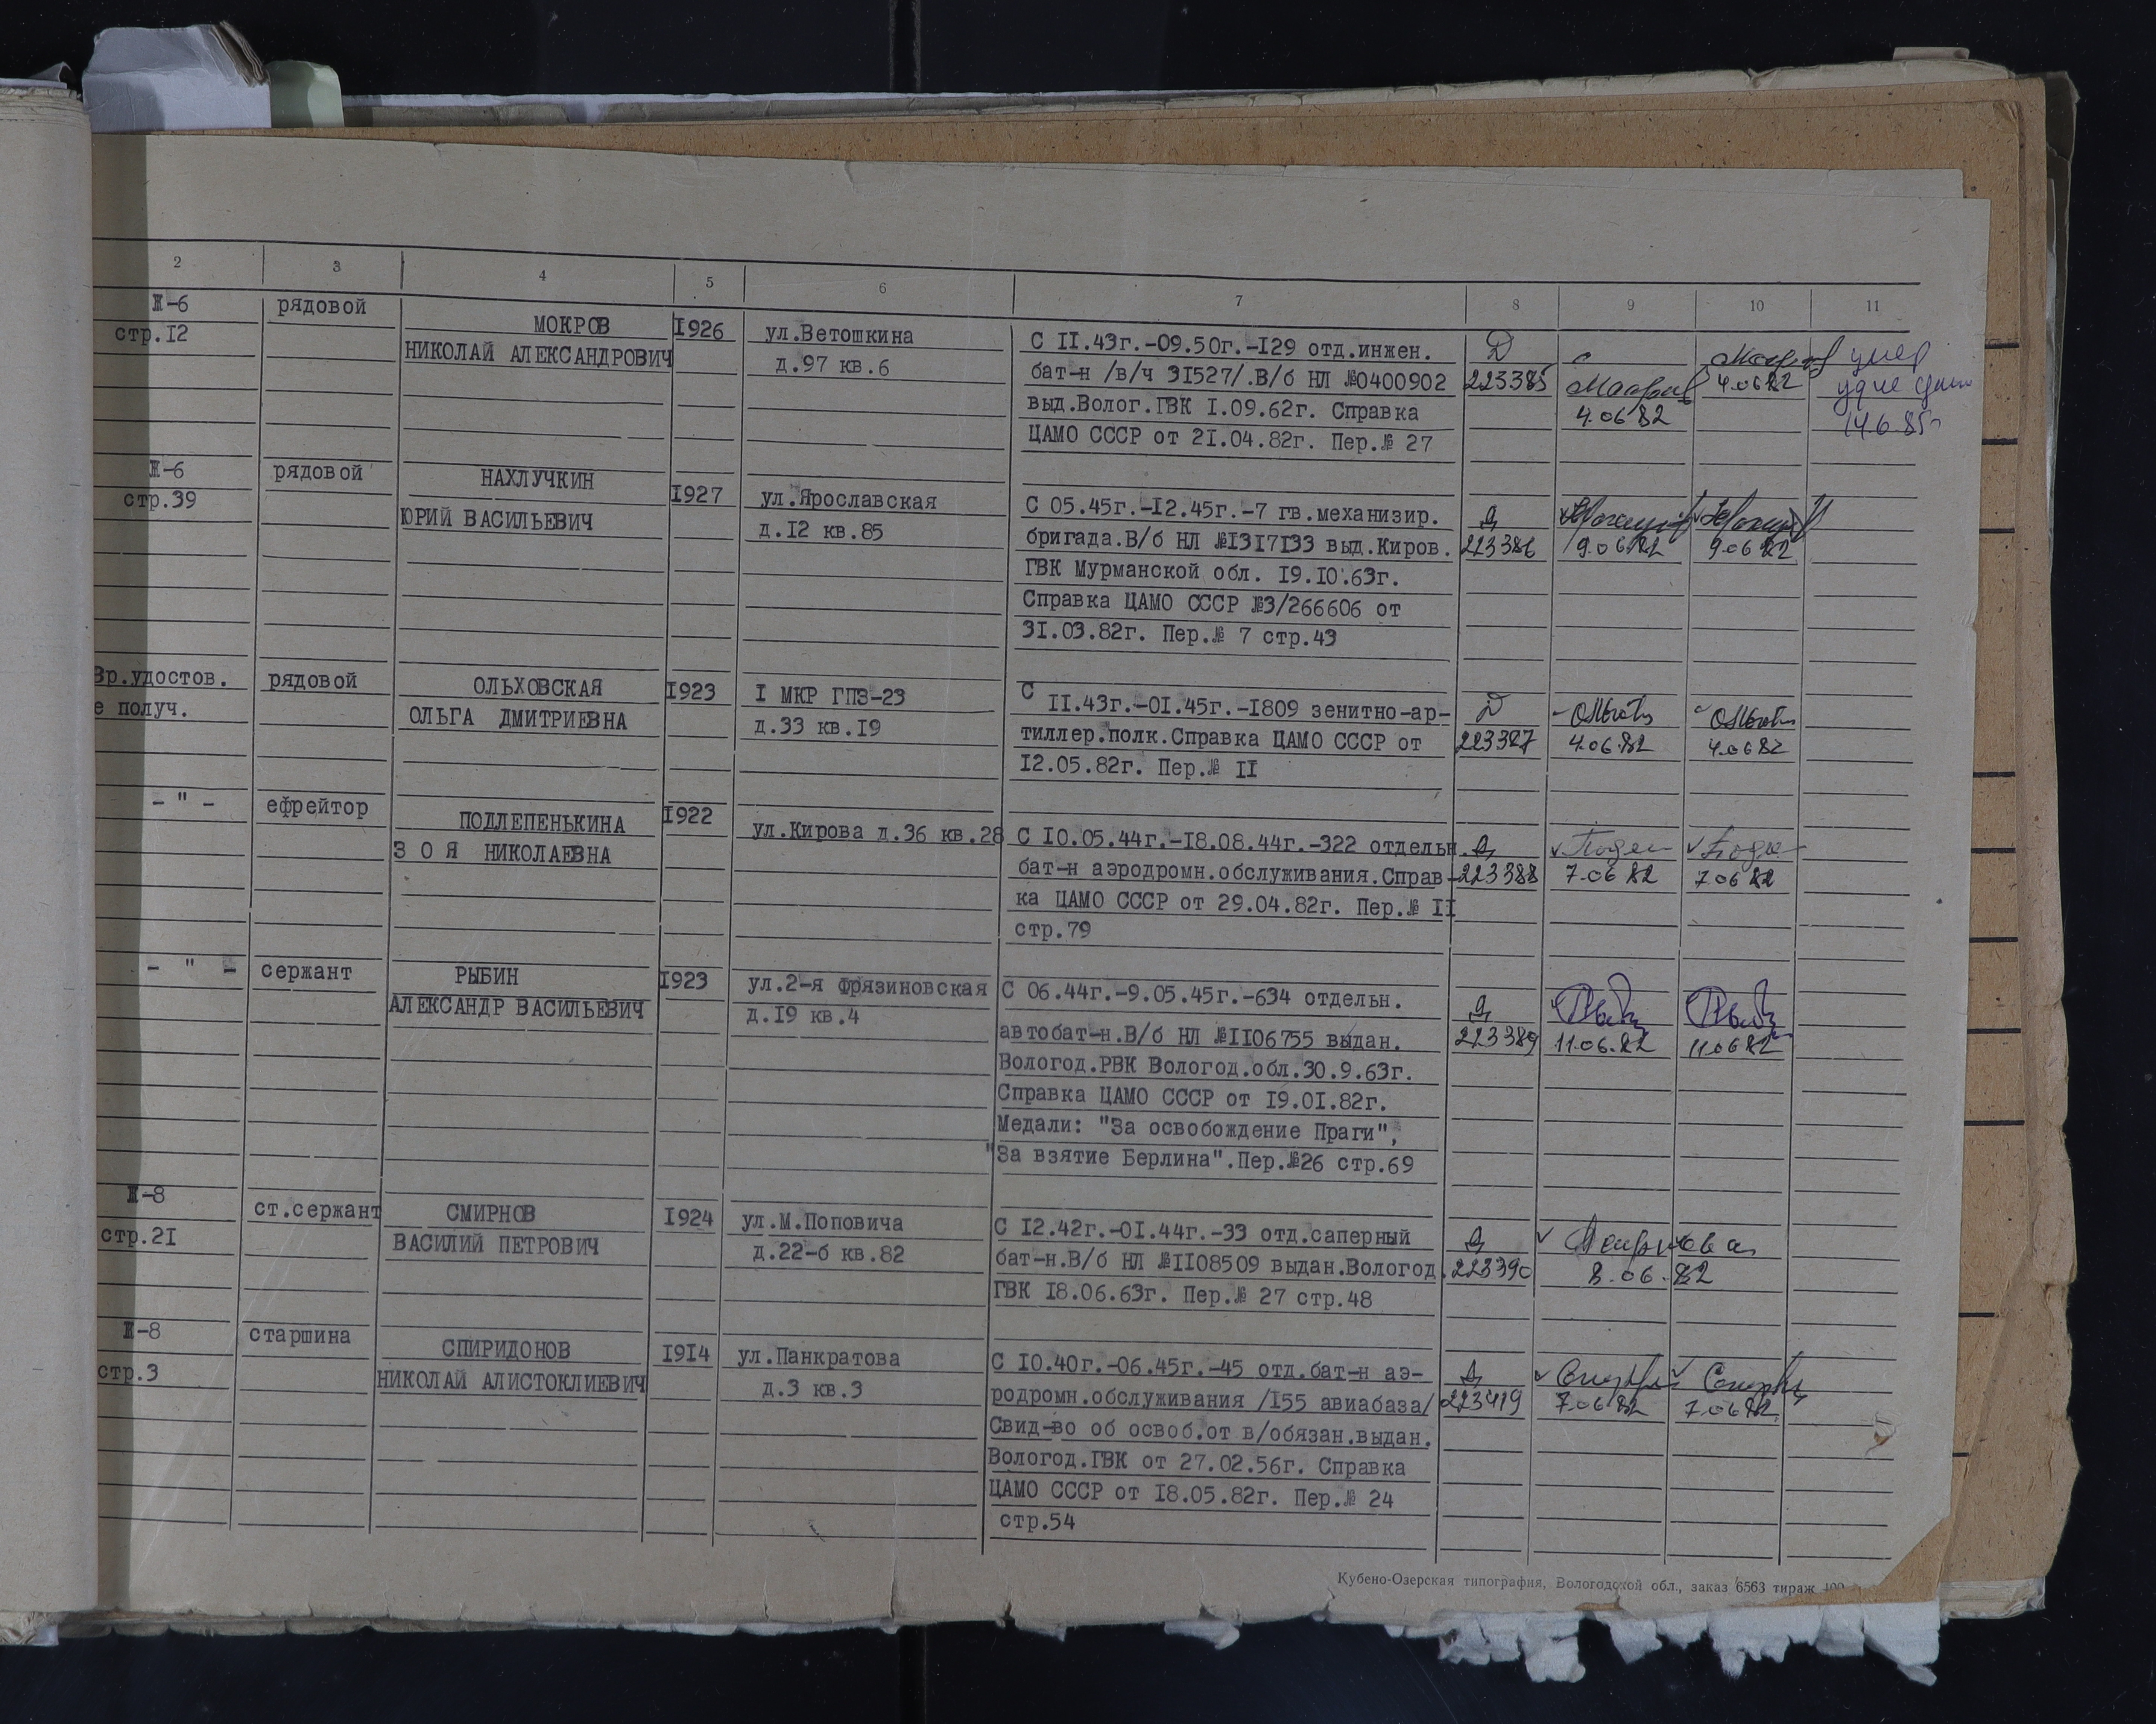 2 3 4 5 6 7 8 9 10 11
Ж-6 рядовой МОКРОВ 1926 ул.Ветошкина С II.43г.-09.50г.-I29 отд.инжен. Д умер
стр.I2 НИКОЛАЙ АЛЕКСАНДРОВИЧ д.97 кв.6 бат-н /в/ч 3I527/.В/б НЛ №0400902 223385 4.06.82
выд.Волог.ГВК I.09.62г. Справка 4.06.82 14.6.85г
ЦАМО СССР от 2I.04.82г. Пер.№ 27
Ж-6 рядовой НАХЛУЧКИН I927 ул.Ярославская С 05.45г.-I2.45г.-7 гв.механизир. Д
стр.39 ЮРИЙ ВАСИЛЬЕВИЧ д.I2 кв.85 бригада.В/б НЛ №I3I7I33 выд.Киров. 223386 9.06.82 9.06.82
ГВК Мурманской обл. I9.I0.63г.
Справка ЦАМО СССР №3/266606 от
3I.03.82г. Пер.№ 7 стр.43
Вр.удостов. рядовой ОЛЬХОВСКАЯ I923 I МКР ГПЗ-23 С II.43г.-0I.45г.-I809 зенитно-ар- Д
е получ. ОЛЬГА ДМИТРИЕВНА д.33 кв.I9 тиллер.полк.Справка ЦАМО СССР от 223387 4.06.82 4.06.82
I2.05.82г. Пер.№ II
- " - ефрейтор ПОДЛЕПЕНЬКИНА I922 ул.Кирова д.36 кв.28 С I0.05.44г.-I8.08.44г.-322 отдельн. Д
З О Я НИКОЛАЕВНА бат-н аэродромн.обслуживания.Справ- 223388 7.06.82 7.06.82
ка ЦАМО СССР от 29.04.82г. Пер.№ II
стр.79
- " - сержант РЫБИН I923 ул.2-я Фрязиновская С 06.44г.-9.05.45г.-634 отдельн. Д
АЛЕКСАНДР ВАСИЛЬЕВИЧ д.I9 кв.4 автобат-н.В/б НЛ №II06755 выдан. 223389 11.06.82 11.06.82
Вологод.РВК Вологод.обл.30.9.63г.
Справка ЦАМО СССР от I9.0I.82г.
Медали: "За освобождение Праги",
"За взятие Берлина".Пер.№26 стр.69
Ж-8 ст.сержант СМИРНОВ I924 ул.М.Поповича С I2.42г.-0I.44г.-33 отд.саперный Д
стр.2I ВАСИЛИЙ ПЕТРОВИЧ д.22-б кв.82 бат-н.В/б НЛ №II08509 выдан.Вологод. 223390 8.06.82
ГВК I8.06.63г. Пер.№ 27 стр.48
Ж-8 старшина СПИРИДОНОВ I9I4 ул.Панкратова С I0.40г.-06.45г.-45 отд.бат-н аэ- Д
стр.3 НИКОЛАЙ АЛИСТОКЛИЕВИЧ д.3 кв.3 родромн.обслуживания /I55 авиабаза/ 223419 7.06.82 7.06.82
Свид-во об освоб.от в/обязан.выдан.
Вологод.ГВК от 27.02.56г. Справка
ЦАМО СССР от I8.05.82г. Пер.№ 24
стр.54
Кубено-Озерская типография, Вологодской обл., заказ 6563 тираж